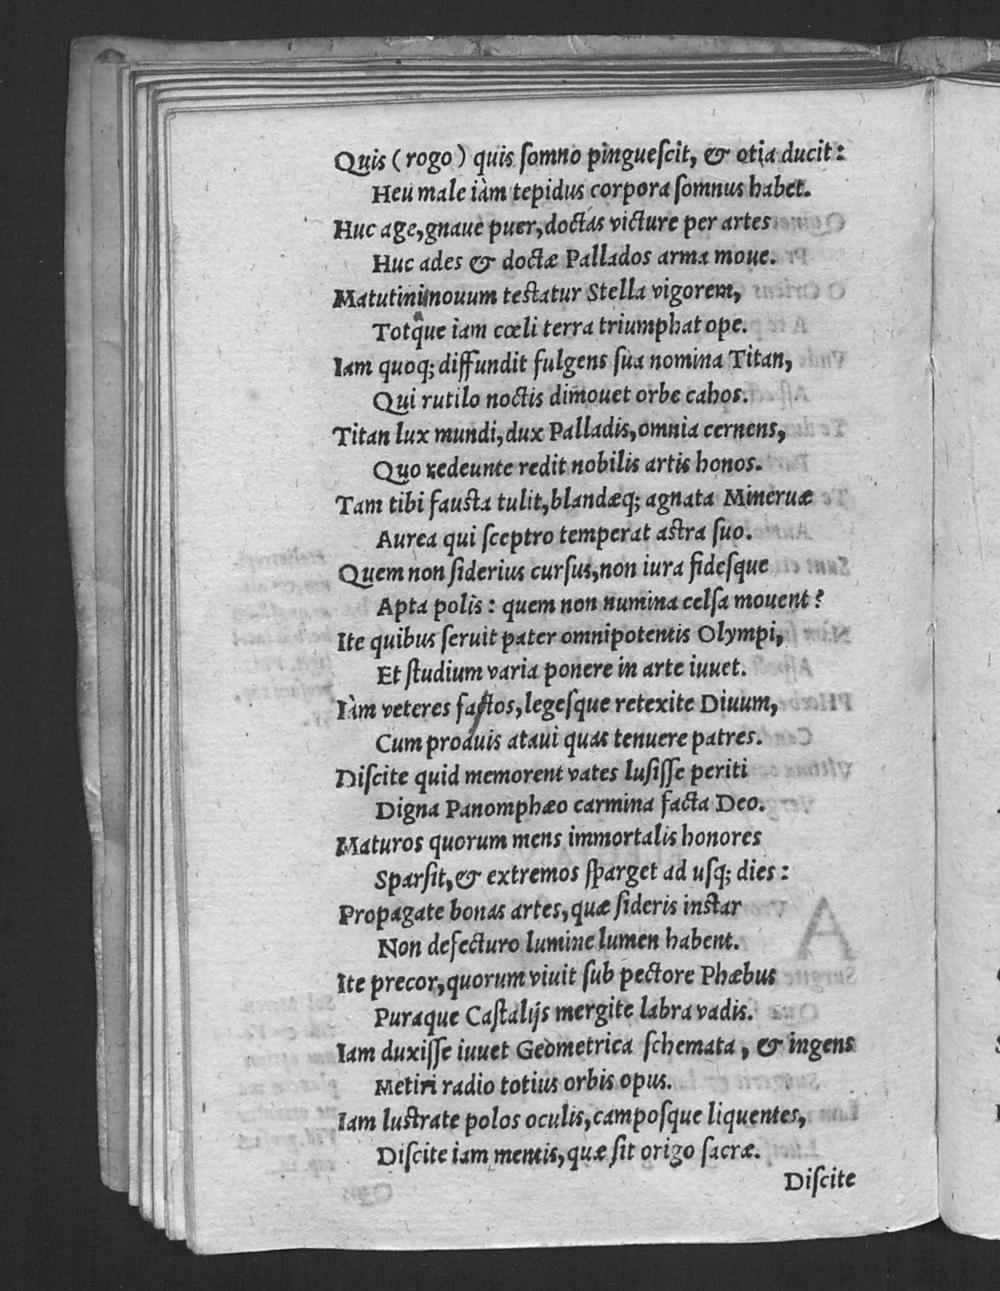 Quis (rogo) quis ſomno pingueſcit, & otia ducit:
Heù male iàm tepidus corpora ſomnus habet.
Huc age, gnaue puer, doctas victure per artes
Huc ades & doctæ Pallados arma moue.
Matutini nouum teſtatur Stella vigorem,
Totq́ue iam cœli terra triumphat ope.
Iam quoq; diffundit fulgens ſua nomina Titan,
Qui rutilo noctis dimouet orbe cahos.
Titan lux mundi, dux Palladis, omnia cernens,
Quo redeunte redit nobilis artis honos.
Tam tibi fauſta tulit, blandæq; agnata Mineruæ
Aurea qui ſceptro temperat aſtra ſuo.
Quem non ſiderius curſus, non iura fideſque
Apta polis: quem non numina celſa mouent?
Ite quibus ſeruit pater omnipotentis Olympi,
Et ſtudium varia ponere in arte iuuet.
Iàm veteres faſtos, legeſque retexite Diuum,
Cum proauis ataui quas tenuere patres.
Diſcite quid memorent vates luſiſſe periti
Digna Panomphæo carmina facta Deo.
Maturos quorum mens immortalis honores
Sparſit, & extremos ſparget ad uſq; dies:
Propagate bonas artes, quæ ſideris inſtar
Non defecturo lumine lumen habent.
Ite precor, quorum viuit ſub pectore Phæbus
Puraque Caſtalijs mergite labra vadis.
Iam duxiſſe iuuet Geometrica ſchemata, & ingens
Metiri radio totius orbis opus.
Iam luſtrate polos oculis, campoſque liquentes,
Diſcite iam mentis, quæ ſit origo ſacræ.
Diſcite